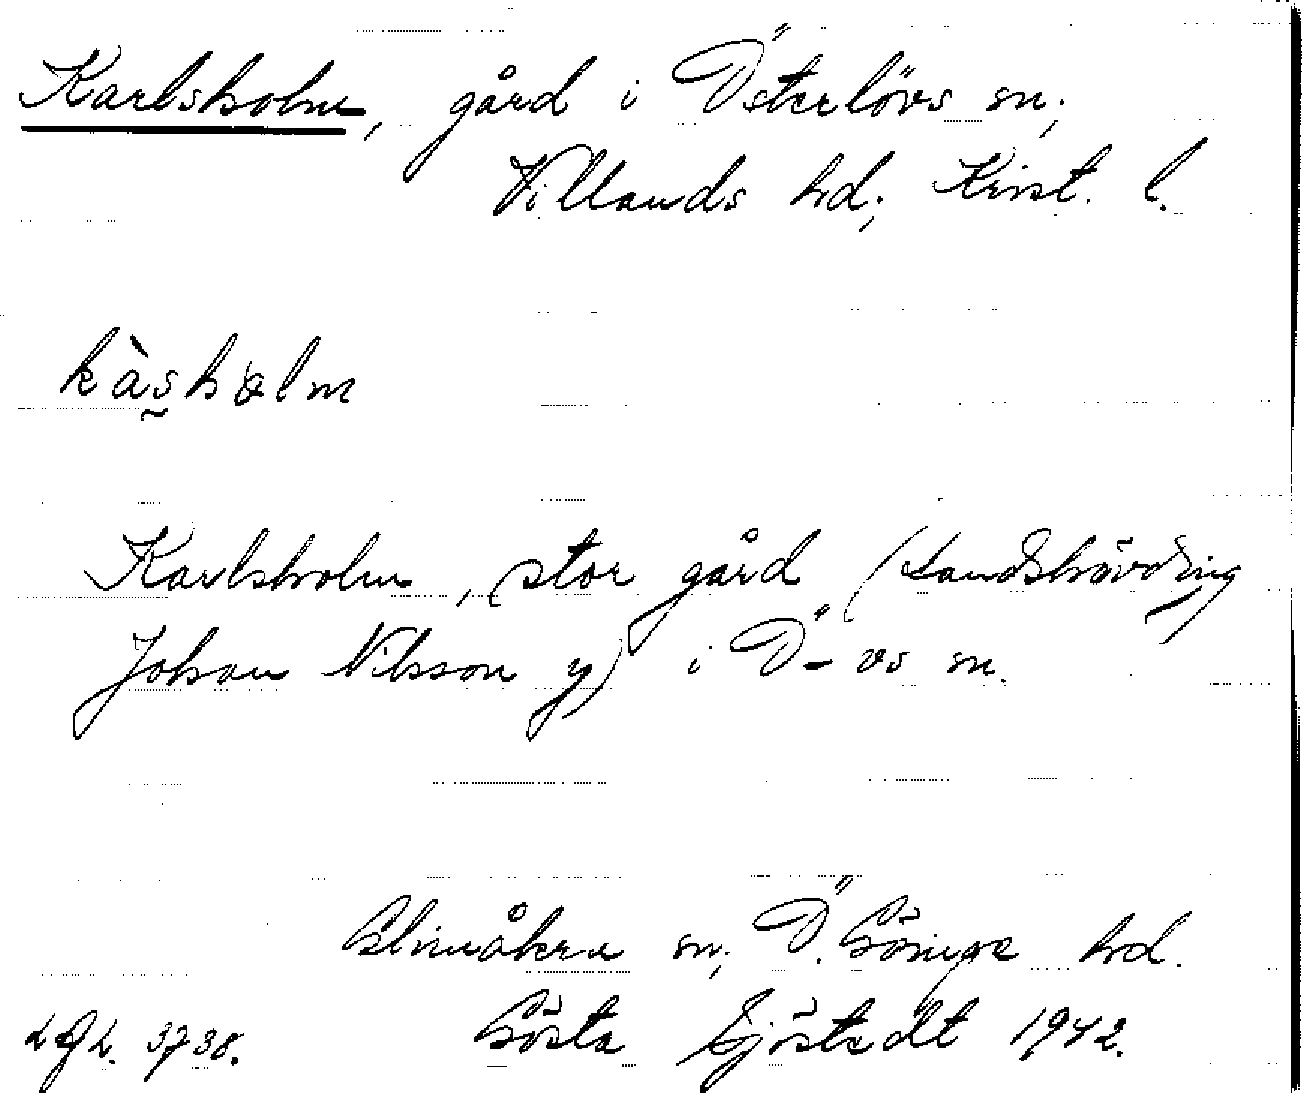 Karlsholm, gård i Österlövs sn;
Villands hd; Krist. l.
kàs̰hɷlm
Karlsholm, stor gård (Landshövding
Johan Nilsson y) i Ö-vs sn.
Glimåkra sn; Ö. Göinge hd.
LAL. 3738. Gösta Sjöstedt 1942.